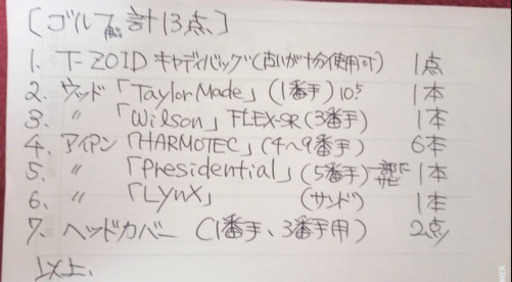 [ゴルフ用品計13点]
1. T-ZOID キャディバッグ(古いが十分使用可) 1点
2. ウッド「TaylorMade」(1番手)10.5 1本
3. 〃 「Wilson」FLEX-SR(3番手) 1本
4. アイアン「HARMOTEC」(4〜9番手) 6本
5. 〃 「Presidential」(5番手)一部にサビ 1本
6. 〃 「LYnX」 (サンド) 1本
7. ヘッドカバー (1番手、3番手用) 2点
以上.